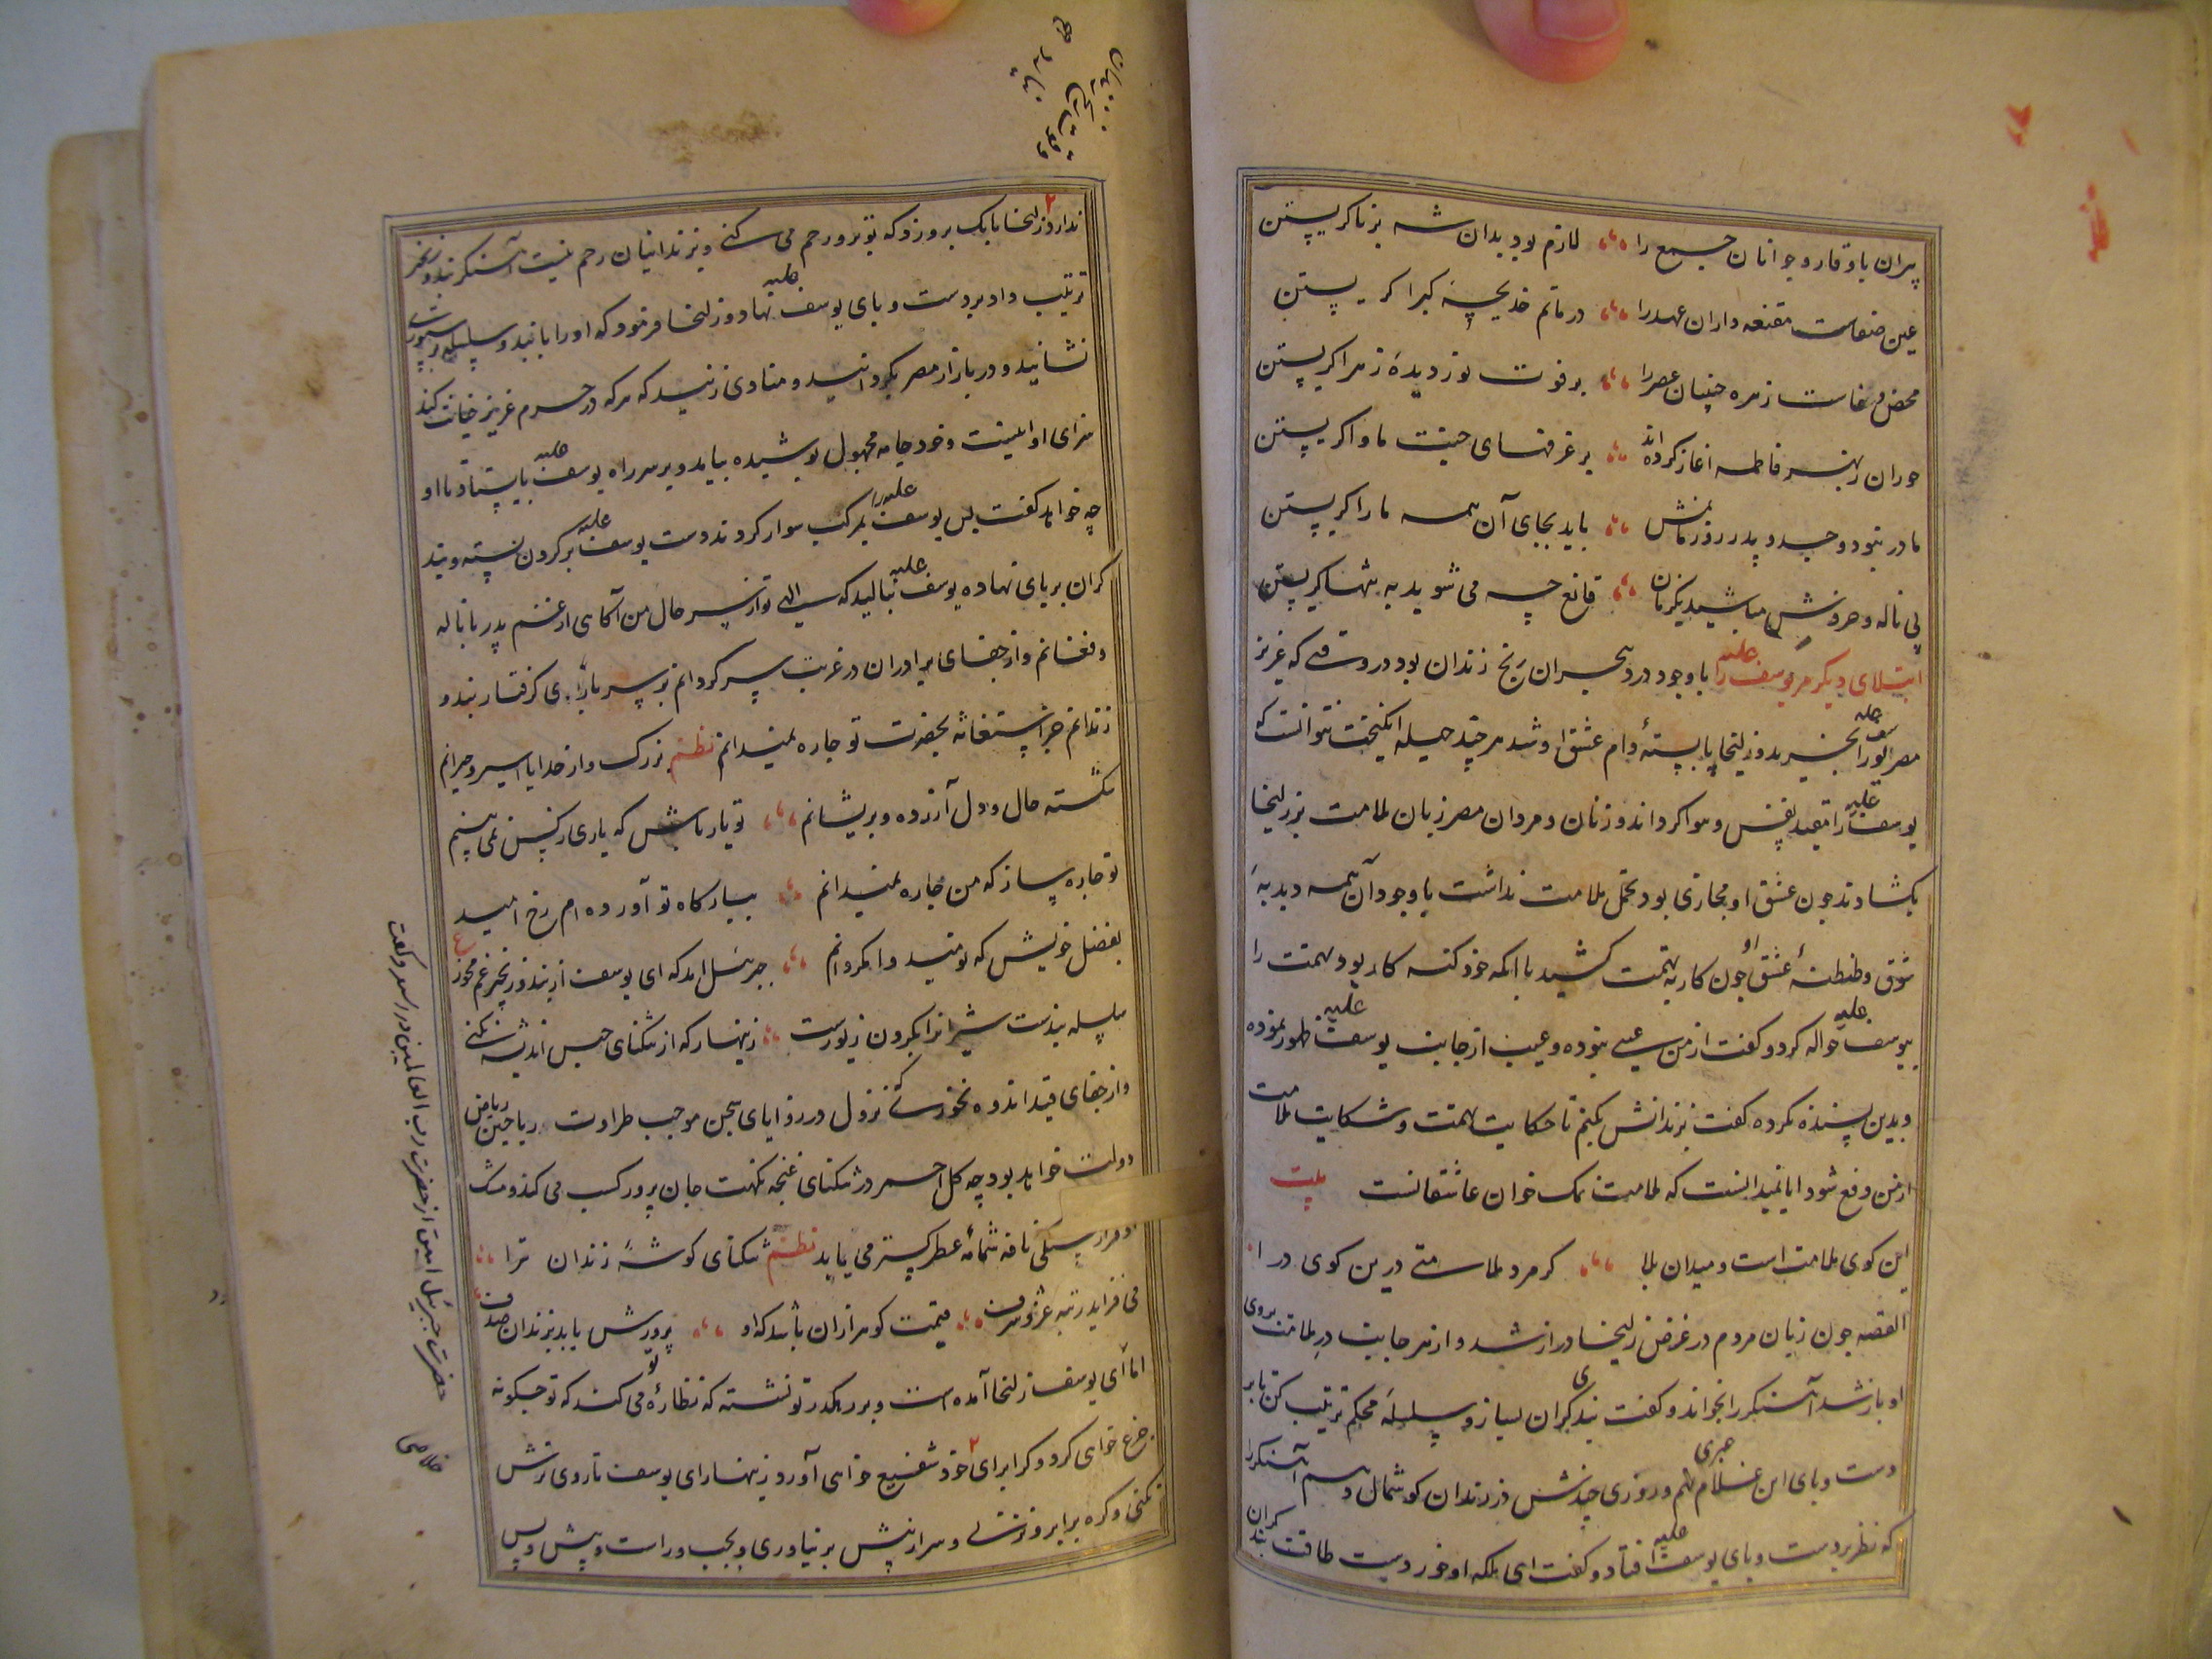 پیران با وقار و جوانان جمیع را لازم بود بدان شه برنا کریستن
عین صفاست مقنعه داران عهد را در ماتم خدیجهٔ کبرا کریستن
محض وفاست زهره جبینان عصر را بر فوت نور دیدهٔ زهرا کریستن
حوران بهر فاطمه اغاز کرده‌اند بر غرفهای جنت ماوا کریستن
مادر نبود و جد و پدر روز ماتمش باید بجای آن همه ما را کریستن
بی ناله و خروش مباشید یکزمان قانع چه می شوید به تنها کریستن
ابتلای دیکر مر یوسف را علیه با وجود درد هجران رنج زندان بود در وقتی که عزیز
مصر او را بخرید و زلیخا پا بستهٔ دام عشق او شد هر چند حیله انکیخت نتوانست که
یوسف علیه را مقید نفس و هوا کرداند و زنان و مردان مصر زبان ملامت بر زلیخا
بکشادند چون عشق او مجازی بود تحمل ملامت نداشت با وجود آن همه دبدبهٔ
شوق و طنطنهٔ عشق او چون کار به تهمت کشید با انکه خود کنه کار بود تهمت را
بیوسف علیه حواله کرد و کفت از من عیبی نبوده و عیب از جانب یوسف علیه ظهور نموده
و بدین بسنده نکرده کفت بزندانش کنیم تا حکایت تهمت و شکایت ملامت
از من دفع شود اما نمیدانست که ملامت نمک خوان عاشقانست بیت
این کوی ملامت است و میدان بلا کر مرد ملامتی درین کوی در ا
القصه چون زبان مردم در غرض زلیخا دراز شد و از هر جانب در ملامت بروی
او باز شد آهنکر را بخواند و کفت بندی کران بساز و سلسلهٔ محکم ترتیب کن تا بر
دست و پای این غلام عبری نهم و روزی چندش در زندان کوشمال دهم آهنکر را
که نظر بر دست و پای یوسف علیه افتاد و کفت ای ملکه او خورد است طاقت بند کران
ندارد زلیخا بانک بر وی زد که تو برو رحم می کنی و بر زندانیان رحم نیست آهنکر بند و زنجیر
ترتیب داد بر دست و پای یوسف علیه نهاد و زلیخا فرمود که او را با بند و سلسله بر ستور
نشانید و در بازار مصر بکردانید و منادی زنید که هر که در حرم عزیز خیانت کند
سزای او اینست و خود جامه مجهول پوشیده بیامد و بر سر راه یوسف علیه بایستاد تا او
چه خواهد کفت پس یوسف علیه را بمرکب سوار کردند و دست یوسف علیه بر کردن بسته و بند
کران بر پای نهاده یوسف علیه بنالید که الهی تو از سر حال من آکاهی از غم پدر با ناله
و فغانم و از جفای برادران در غربت سر کردانم بر سر بازاری کرفتار بند و
زندانم جز استغاثه بحضرت تو چاره نمیدانم نظم بزرک وار خدایا اسیر و حیرانم
شکسته حال و دل آزرده و پریشانم تو یار باش که یاری ز کس نمی بینم
تو چاره ساز که من چاره نمیدانم ببارکاه تو آورده ام رخ امید
بفضل خویش که نومید وا مکردانم جبرئیل امد که ای یوسف از بند و زنجیر غم مخور
سلسله بندست شیران را بکردن زیورست زینهار که از تنکنای حبس اندیشه نکنی
و از جفای قید اندوه نخوری که نزول در زوایای سجن موجب طراوت ریاحین ریاض
دولت خواهد بود چه کل احمر در تنکنای غنچه نکهت جان پرور کسب می کند و مشک
نافه شمامهٔ عطر کستر می یابد نظم تنکنای کوشهٔ زندان ترا
می فزاید رتبه عز و شرف قیمت کوهر ازان باشد که او پرورش یابد بزندان صدف
اما ای یوسف زلیخا آمده است و بر رهکذر تو نشسته که نظارهٔ تو می کند که تو چکونه
جزع خواهی کرد و کرا برای خود شفیع خواهی آورد زینهار ای یوسف تا روی ترش
نکنی و کره بر ابرو نزنی و سر از پیش بر نیاوری و بچپ و راست و پیش و پس
حضرت جبرئیل امین از حضرت رب العالمین در اسد و کفت
غلامی